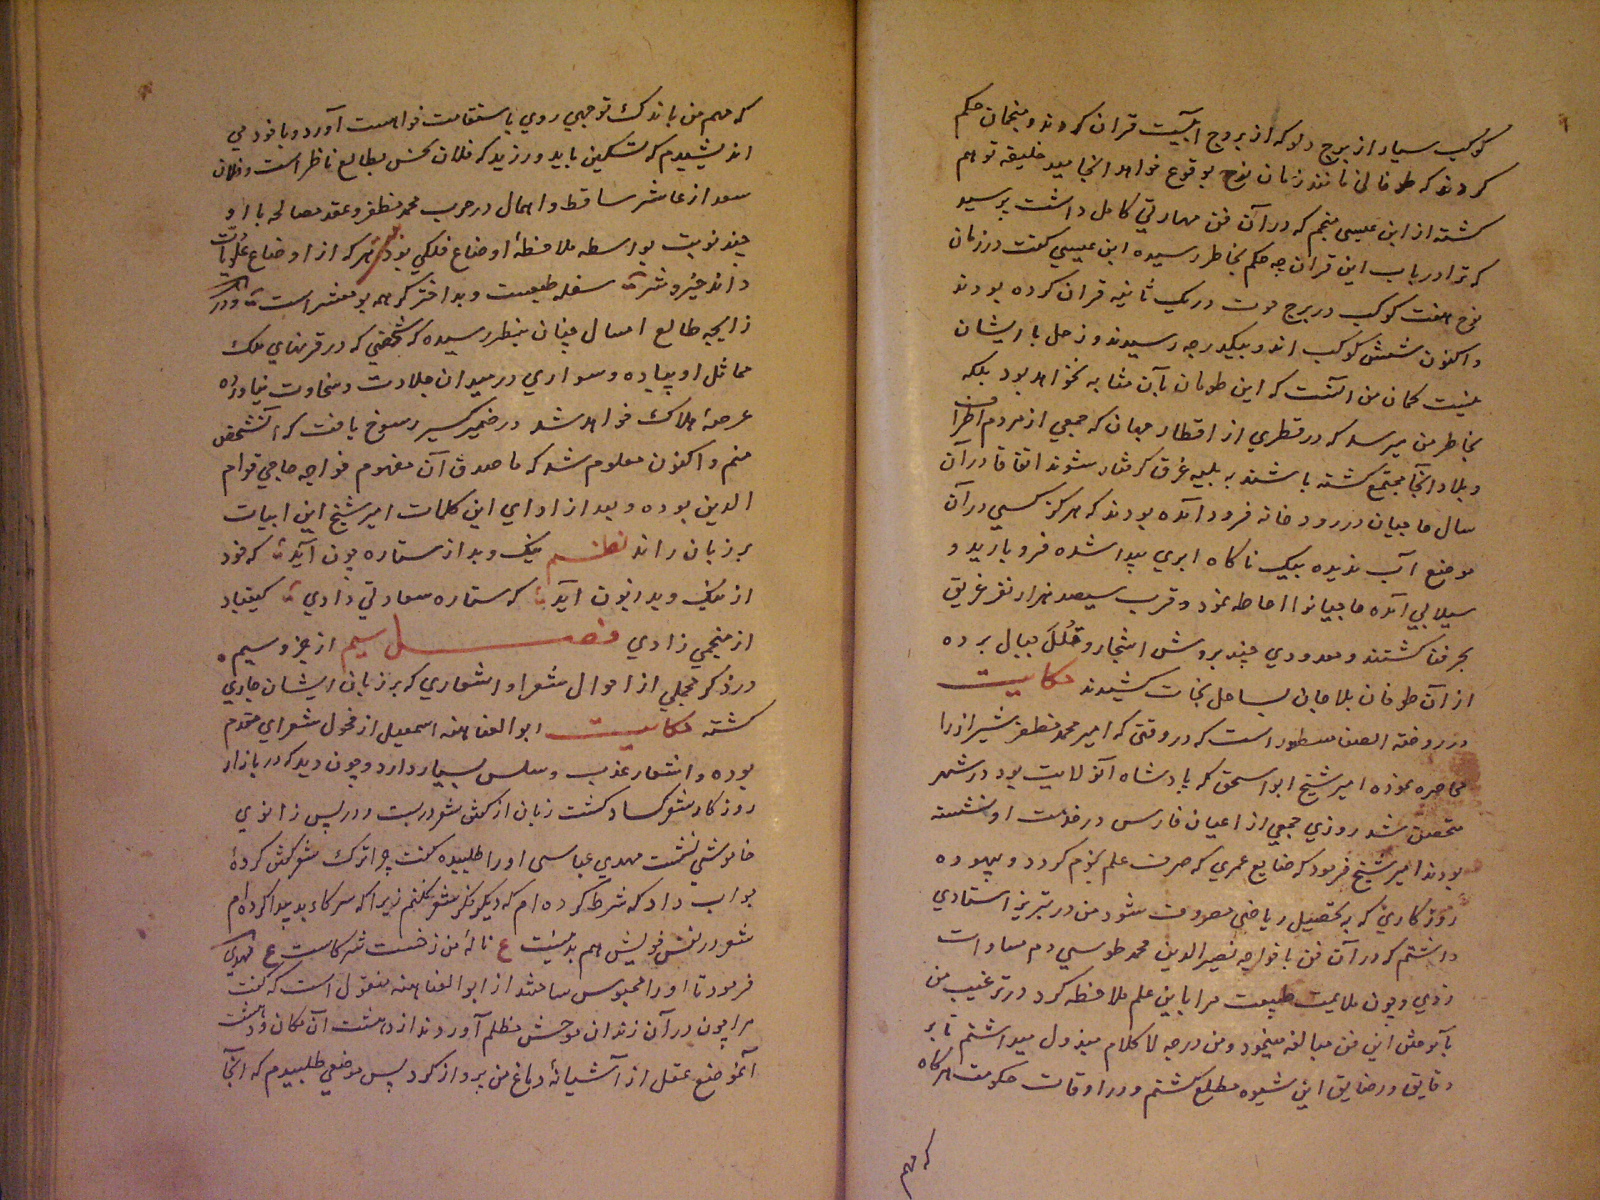 کوکب سیار از برج دلو که از بروج آبیست قران کردند و منجمان حکم
کردند که طوفانی مانند زمان نوح بوقوع خواهد انجامید خلیفه توهم
کشته از ابن عیسی منجم که در آن فن مهارتی کامل داشت پرسید
که ترا در باب این قران چه حکم بخاطر رسیده ابن عیسی کفت در زمان
نوح هفت کوکب در برج حوت در یک ثانیه قران کرده بودند
و اکنون شش کوکب اند و بیکدرجه رسیدند و زحل با ایشان
نیست کمان من آنست که این طوفان بآن مثابه نخواهد بود بلکه
بخاطر من میرسد که در قطری از اقطار جهان که جمعی از مردم اطراف
و بلاد آنجا مجتمع کشته باشند به بلیه غرق کرفتار شوند اتفاقا در آن
سال حاجیان در رودخانه فرود آمده بودند که هرکز کسی در آن
موضع آب ندیده بیک ناکاه ابری پیدا شده فرو بارید و
سیلابی آمده حاجیانرا احاطه نمود و قرب سیصد هزار نفر غریق
بحر فنا کشتند و معدودی چند بروش اشجار و قلل جبال برده
از آن طوفان بلا جان بساحل نجات کشیدند حکایت
در روضة الصفا مسطور است که در وقتی که امیر محمد مظفر شیراز را
محاصره نموده امیر شیخ ابو اسحق که پادشاه آنولایت بود در شهر
متحصن شد روزی جمعی از اعیان فارس در خدمت او نشسته
بودند امیر شیخ فرمود که ضایع عمری که صرف علم نجوم کردد و بیهوده
روزکاری که به تحصیل ریاضی مصروف شود من در تبریز استادی
داشتم که در آن فن با خواجه نصیر الدین محمد طوسی دم مساوات
زدی و چون ملایمت طبیعت مرا باین علم ملاحظه کرد در ترغیب من
بآموختن این فن مبالغه مینمود و من درجه لا کلام مبذول میداشتم تا بر
دقایق و رضایق این شیوه مطلع کشتم و در اوقات حکومت هرکاه
که مهم
که مهم من باندک توجهی روی باستقامت خواهست آورد و با خود می
اندیشیدم که تسکین باید ورزید که فلان نحس بطالع ناظر است و فلان
سعد از عاشر ساقط و اهمال در حرب محمد مظفر و عقد مصالحه با او
چند نوبت بواسطه ملاحظهٔ اوضاع فلکی بود شعر هر که از اوضاع علویات
داند خیر و شر سفله طبعست و بد اختر کر همه بو معشر است و در
زایچه طالع امسال چنان بنظر رسیده که شخصی که در قرنهای فلک
مماثل او پیاده و سواری در میدان جلادت و سخاوت نیاورده
عرصهٔ هلاک خواهد شد در ضمیر کسیر رسوخ یافت که آنشخص
منم و اکنون معلوم شد که ما صدق آن مفهوم خواجه حاجی قوام
الدین بوده و بعد از ادای این کلمات امیر شیخ این ابیات
بر زبان راند نظم نیک و بد از ستاره چون آید که خود
از نیک و بد زبون آید که ستاره سعادتی دادی کیقباد
از منجمی زادی فصل سیم از جزو سیم
در ذکر مجملی از احوال شعرا و اشعاری که بر زبان ایشان جاری
کشته حکایت ابو العتاهیه اسمعیل از فحول شعرای مقدم
بوده و اشعار عذب و سلس بسیار دارد و چون دید که در بازار
روزکار شعر کساد کشت زبان از کفتن شعر در بست و در پس زانوی
خاموشی نشست مهدی عباسی او را طلبیده کفت چرا ترک شعر کفتن کردهٔ
جواب داد که شرط کرده ام که دیکر نکر شعر نکنم زیرا که شرکاء بد پیدا کرده ام
شعر در نفس خویش هم بد نیست ع نالهٔ من زخست شرکاست ع مهدی
فرمود تا او را محبوس ساختند از ابو العتاهیه منقول است که کفت
مرا چون در آن زندان موحش مظلم آوردند از دهشت آن مکان و وحشت
آنموضع عقل از آشیانهٔ دماغ من پرواز کرد پس موضعی طلبیدم که آنجا